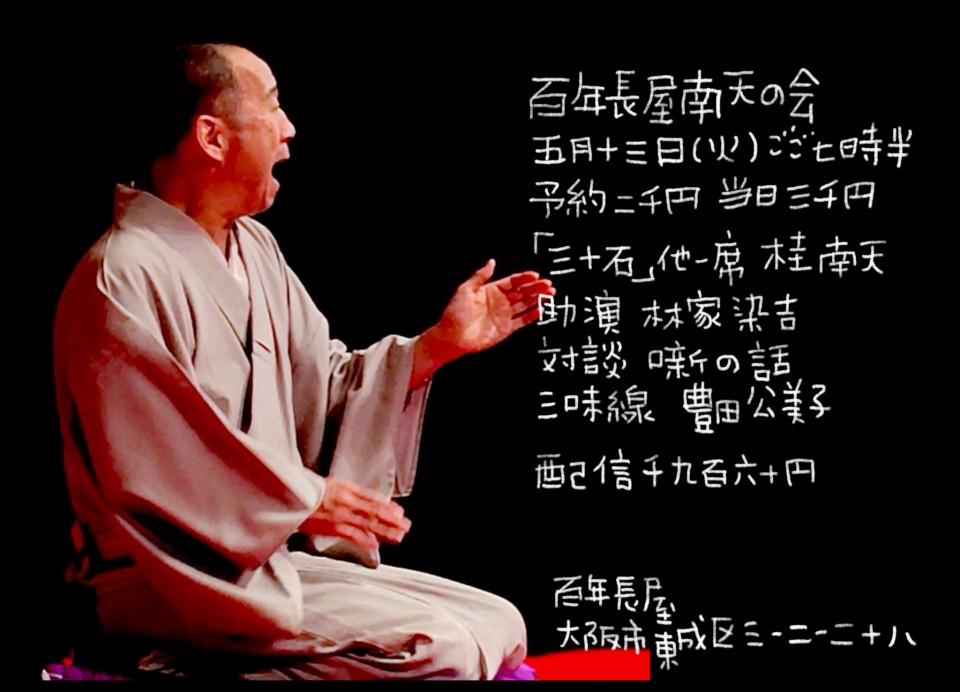 百年長屋南天の会
五月十三日(火)ごご七時半
予約二千円 当日三千円
「三十石」他一席 桂南天
助演 林家染吉
対談 噺の話
三味線 豊田公美子
配信千九百六十円
百年長屋
大阪市東成区三-二-二十八